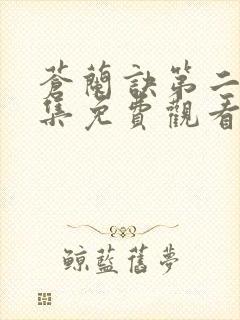 蒼蘭訣第二
集免費觀看
鯨藍舊夢